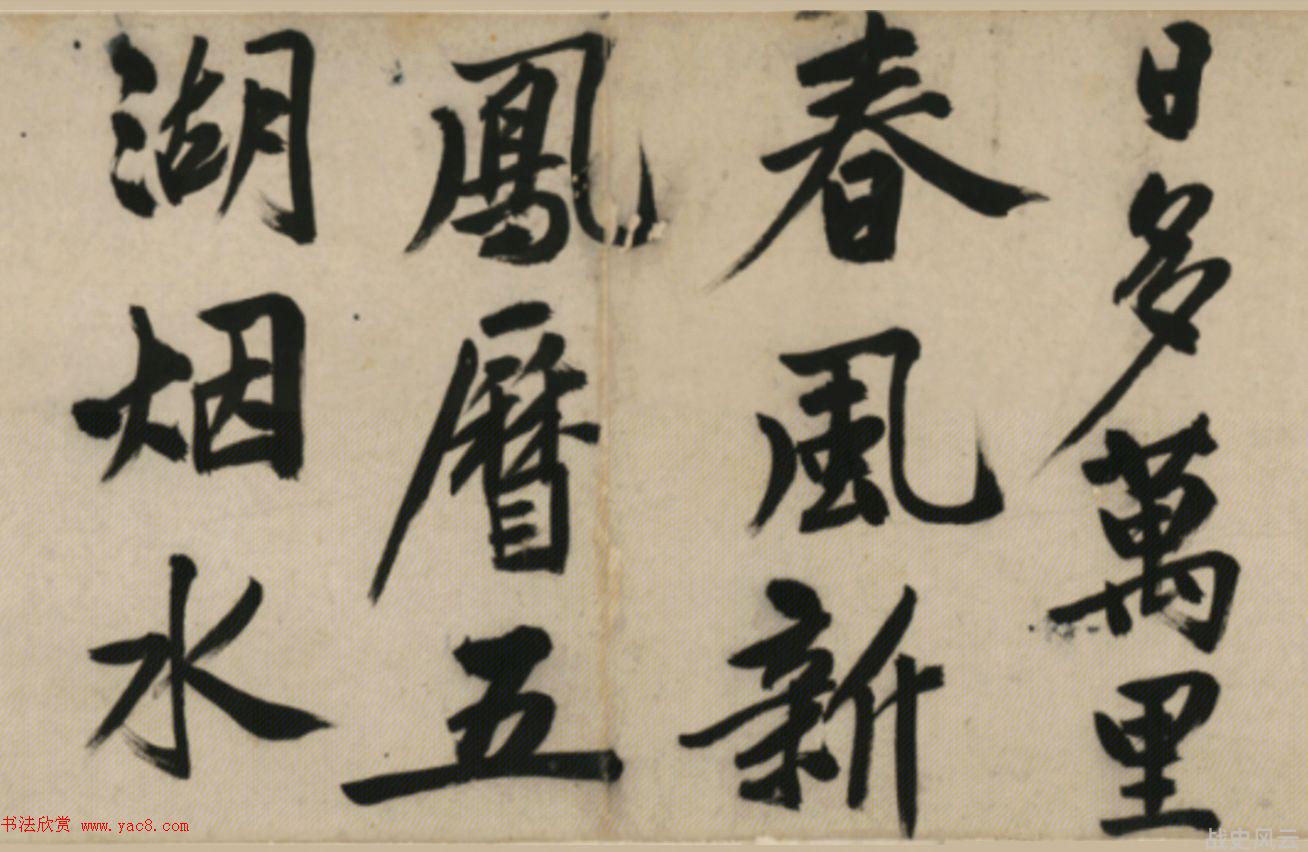 日多萬里
春風新
鳳曆五
湖烟水
书法欣赏 www.yac8.com
战史风云